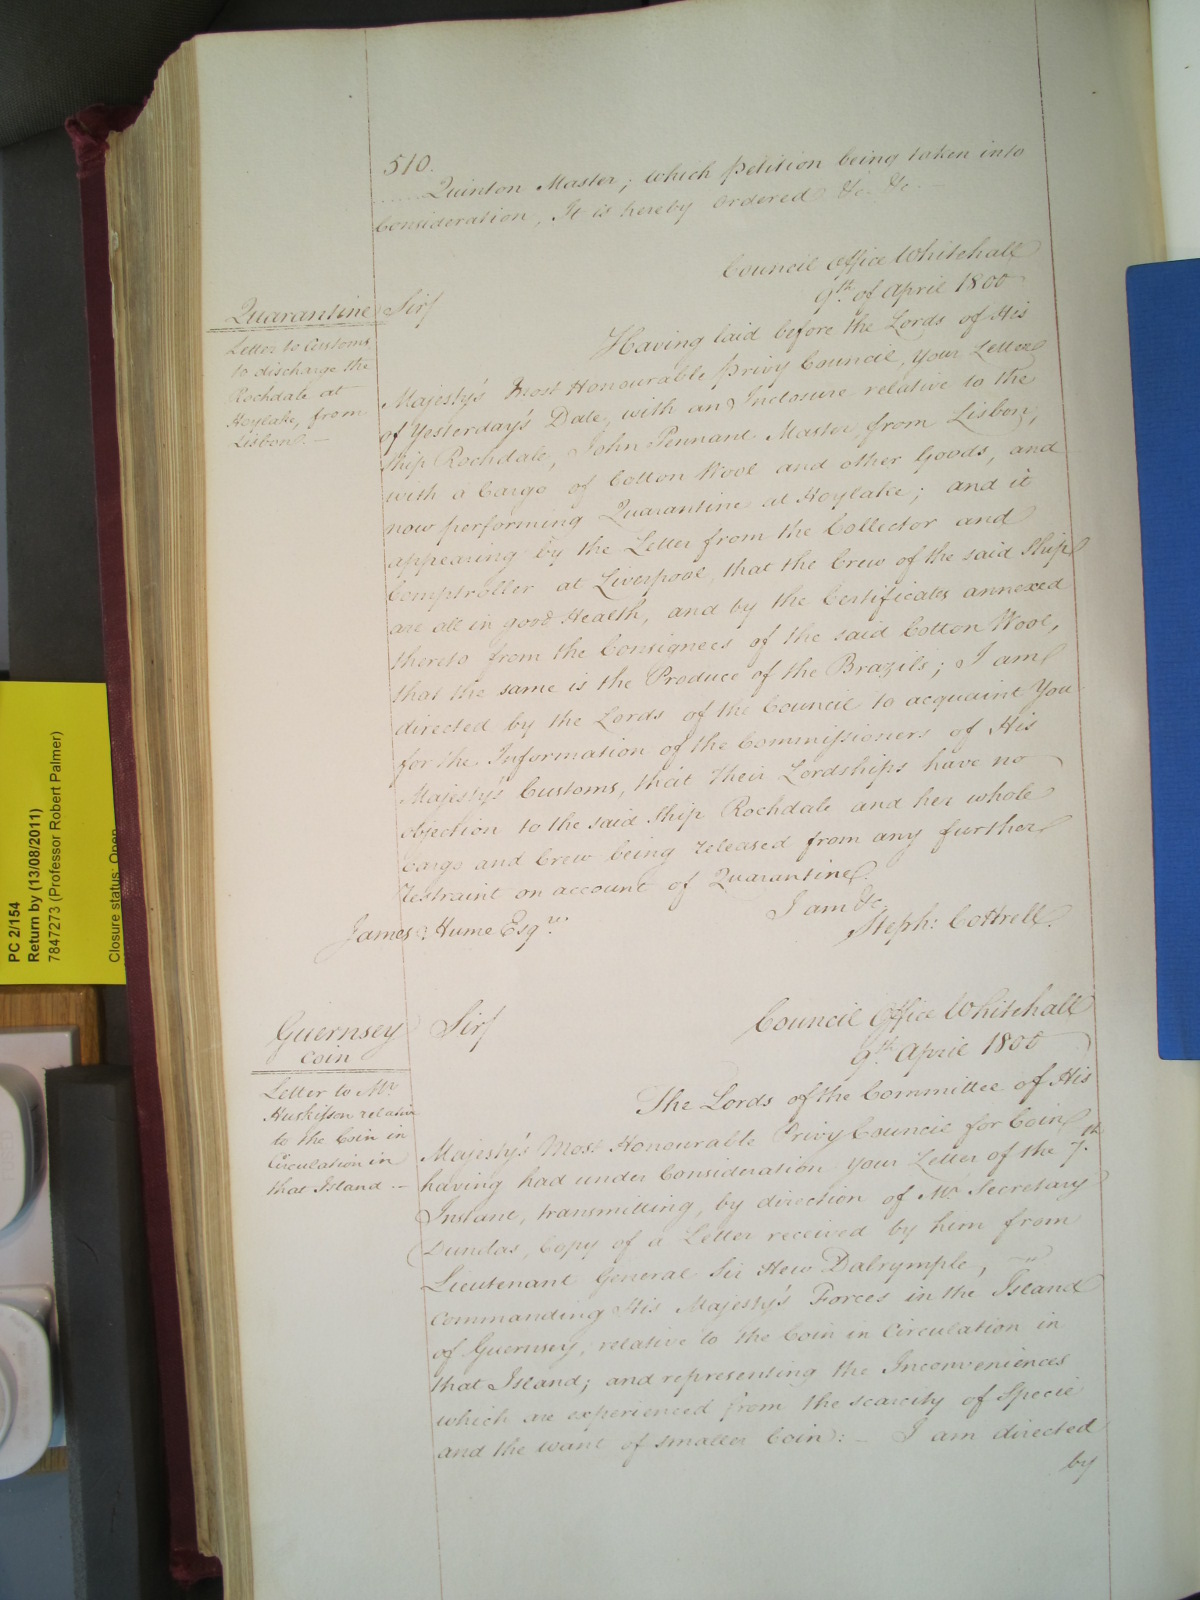 510.
Quinton Master; which Petition being taken into
Consideration, It is hereby Ordered &c. &c.
Council Office Whitehall
9th. of April 1800
Quarantine
Letter to Customs
to discharge the
Rochdale at
Hoylake, from
Lisbon. —
Sir/
Having laid before the Lords of His
Majesty's Most Honourable Privy Council, Your Letter
of Yesterday's Date, with an Inclosure relative to the
Ship Rochdale, John Pennant Master from Lisbon,
with a Cargo of Cotton Wool and other Goods, and
now performing Quarantine at Hoylake; and it
appearing by the Letter from the Collector and
Comptroller at Liverpool, that the Crew of the said Ship
are all in good Health, and by the Certificates annexed
thereto from the Consignees of the said Cotton Wool,
that the same is the Produce of the Brazils; I am
directed by the Lords of the Council to acquaint You
for the Information of the Commissioners of His
Majesty's Customs, that Their Lordships have no
objection to the said Ship Rochdale and her whole
Cargo and Crew being released from any further
Restraint on account of Quarantine.
I am &c.
James Hume Esqre.
Steph: Cottrell.
Guernsey
Coin
Letter to Mr
Huskisson relative
to the Coin in
Circulation in
that Island —
Sir/
Council Office Whitehall
9th. April 1800
The Lords of the Committee of His
Majesty's Most Honourable Privy Council for Coin
having had under Consideration Your Letter of the 7th.
Instant, transmitting, by direction of Mr Secretary
Dundas, Copy of a Letter received by him from
Lieutenant General Sir Hew Dalrymple,
Commanding His Majesty's Forces in the Island
of Guernsey, relative to the Coin in Circulation in
that Island; and representing the Inconveniences
which are experienced from the scarcity of Specie
and the want of smaller Coin: — I am directed
by
PC 2/154
Return by (13/08/2011)
7847273 (Professor Robert Palmer)
Closure status: Open